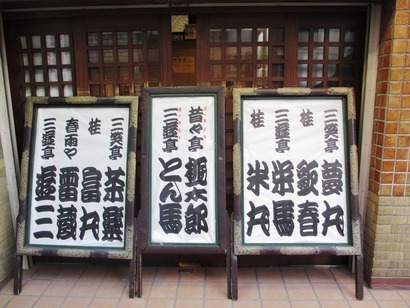 三笑亭 夢丸
桂 歌春
三遊亭 栄馬
桂 米丸
昔々亭 桃太郎
三遊亭 とん馬
三笑亭 茶楽
桂 富丸
春雨や 雷蔵
三遊亭 遊三